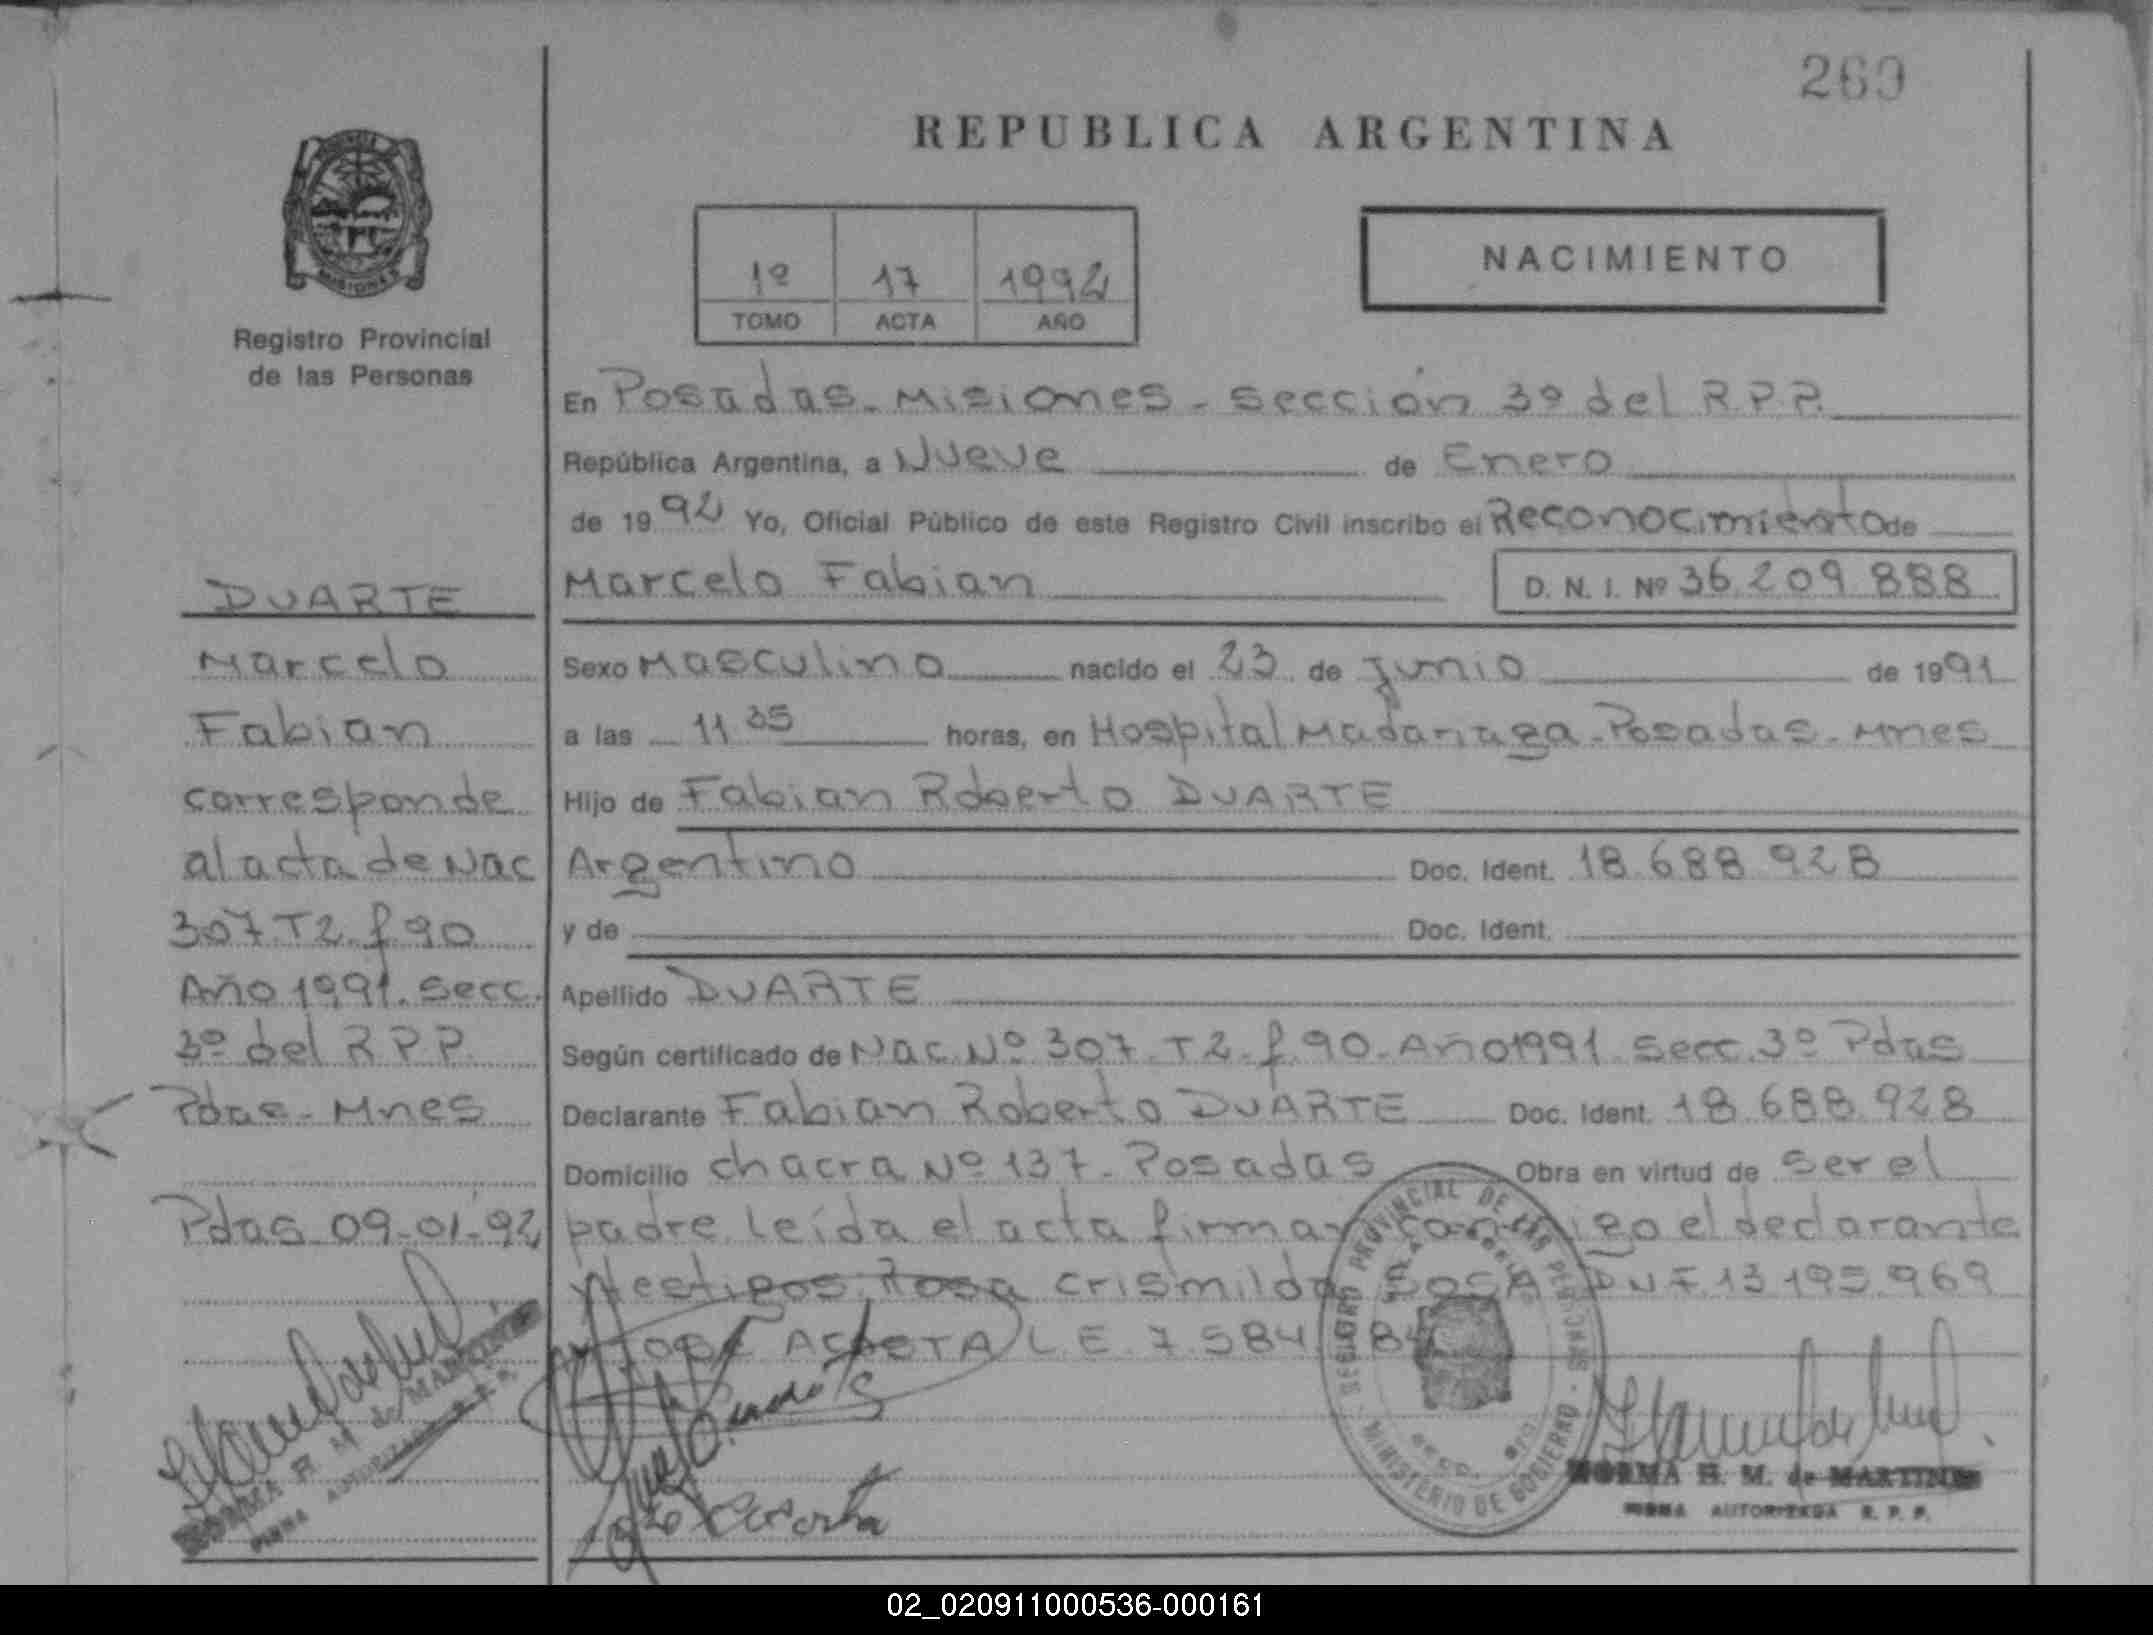 269
REPUBLICA ARGENTINA
1º 17 1992
TOMO ACTA AÑO
NACIMIENTO
Registro Provincial
de las Personas
DUARTE
Marcelo
Fabian
corresponde
al acta de Nac
307. T2. f 90
Año 1991. Secc.
3º del R P P.
Pdas - Mnes
Pdas 09-01-92
NORMA H. M. de MARTINEZ
FIRMA AUTORIZADA R. P. P.
En Posadas - Misiones - Sección 3º del R.P.P.
República Argentina, a Nueve de Enero
de 1992 Yo, Oficial Público de este Registro Civil inscribo el Reconocimiento de
Marcelo Fabian D. N. I. Nº 36.209.888
Sexo Masculino nacido el 23 de Junio de 1991
a las 11 35 horas, en Hospital Madariaga - Posadas - Mnes
Hijo de Fabian Roberto DUARTE
Argentino Doc. Ident. 18.688.928
y de Doc. Ident.
Apellido DUARTE
Según certificado de Nac. Nº 307. T2. f 90 - Año 1991. Secc. 3º Pdas
Declarante Fabian Roberto DUARTE Doc. Ident. 18.688.928
Domicilio chacra Nº 137 - Posadas Obra en virtud de ser el
padre. Leída el acta firman conmigo el declarante
y testigos Rosa Crismilda SOSA DNI F 13.195.969
José ACOSTA L.E. 7.584
REGISTRO PROVINCIAL DE LAS PERSONAS - MINISTERIO DE GOBIERNO
NORMA H. M. de MARTINEZ
FIRMA AUTORIZADA R. P. P.
02_020911000536-000161